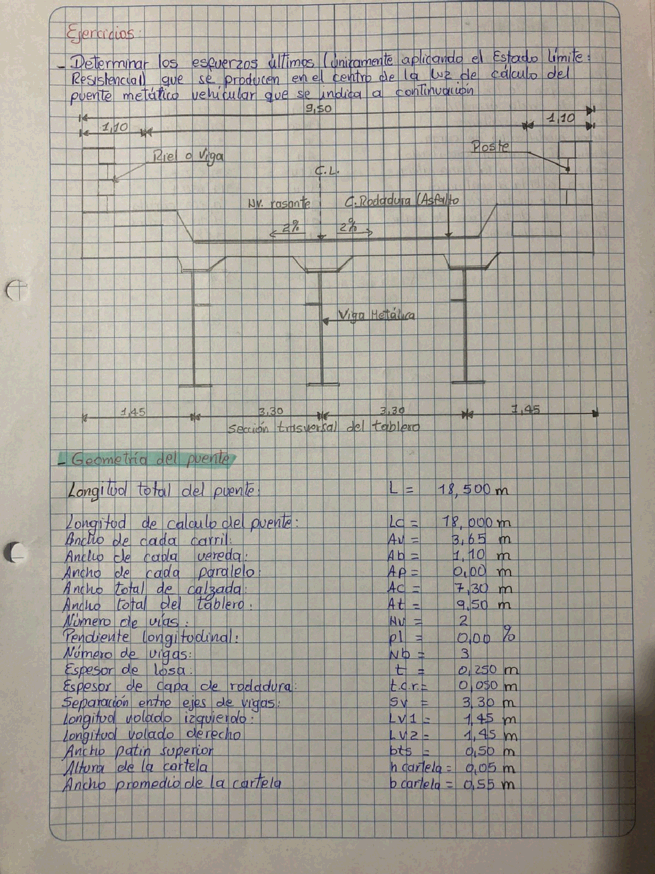 Ejercicios:
- Determinar los esfuerzos últimos (únicamente aplicando el Estado límite:
Resistencial) que se producen en el centro de la luz de cálculo del
puente metálico vehicular que se indica a continuación
9,50
1,10
1,10
Riel o Viga
Poste
C.L.
Nv. rasante
C. Rodadura (Asfalto
2%
2%
Viga Metálica
1,45
3,30
3,30
1,45
Sección trasversal del tablero
- Geometría del puente
Longitud total del puente: L = 18,500 m
Longitud de calculo del puente: Lc = 18,000 m
Ancho de cada carril: Av = 3,65 m
Ancho de cada vereda: Ab = 1,10 m
Ancho de cada paralelo: Ap = 0,00 m
Ancho total de calzada: Ac = 7,30 m
Ancho total del tablero: At = 9,50 m
Número de vías: Nv = 2
Pendiente longitudinal: pl = 0,00 %
Número de vigas: Nb = 3
Espesor de losa: t = 0,250 m
Espesor de capa de rodadura: t.c.r= 0,050 m
Separación entre ejes de vigas: Sv = 3,30 m
Longitud volado izquierdo: LV1 = 1,45 m
Longitud volado derecho LV2 = 1,45 m
Ancho patín superior bts = 0,50 m
Altura de la cartela h cartela = 0,05 m
Ancho promedio de la cartela b cartela = 0,55 m